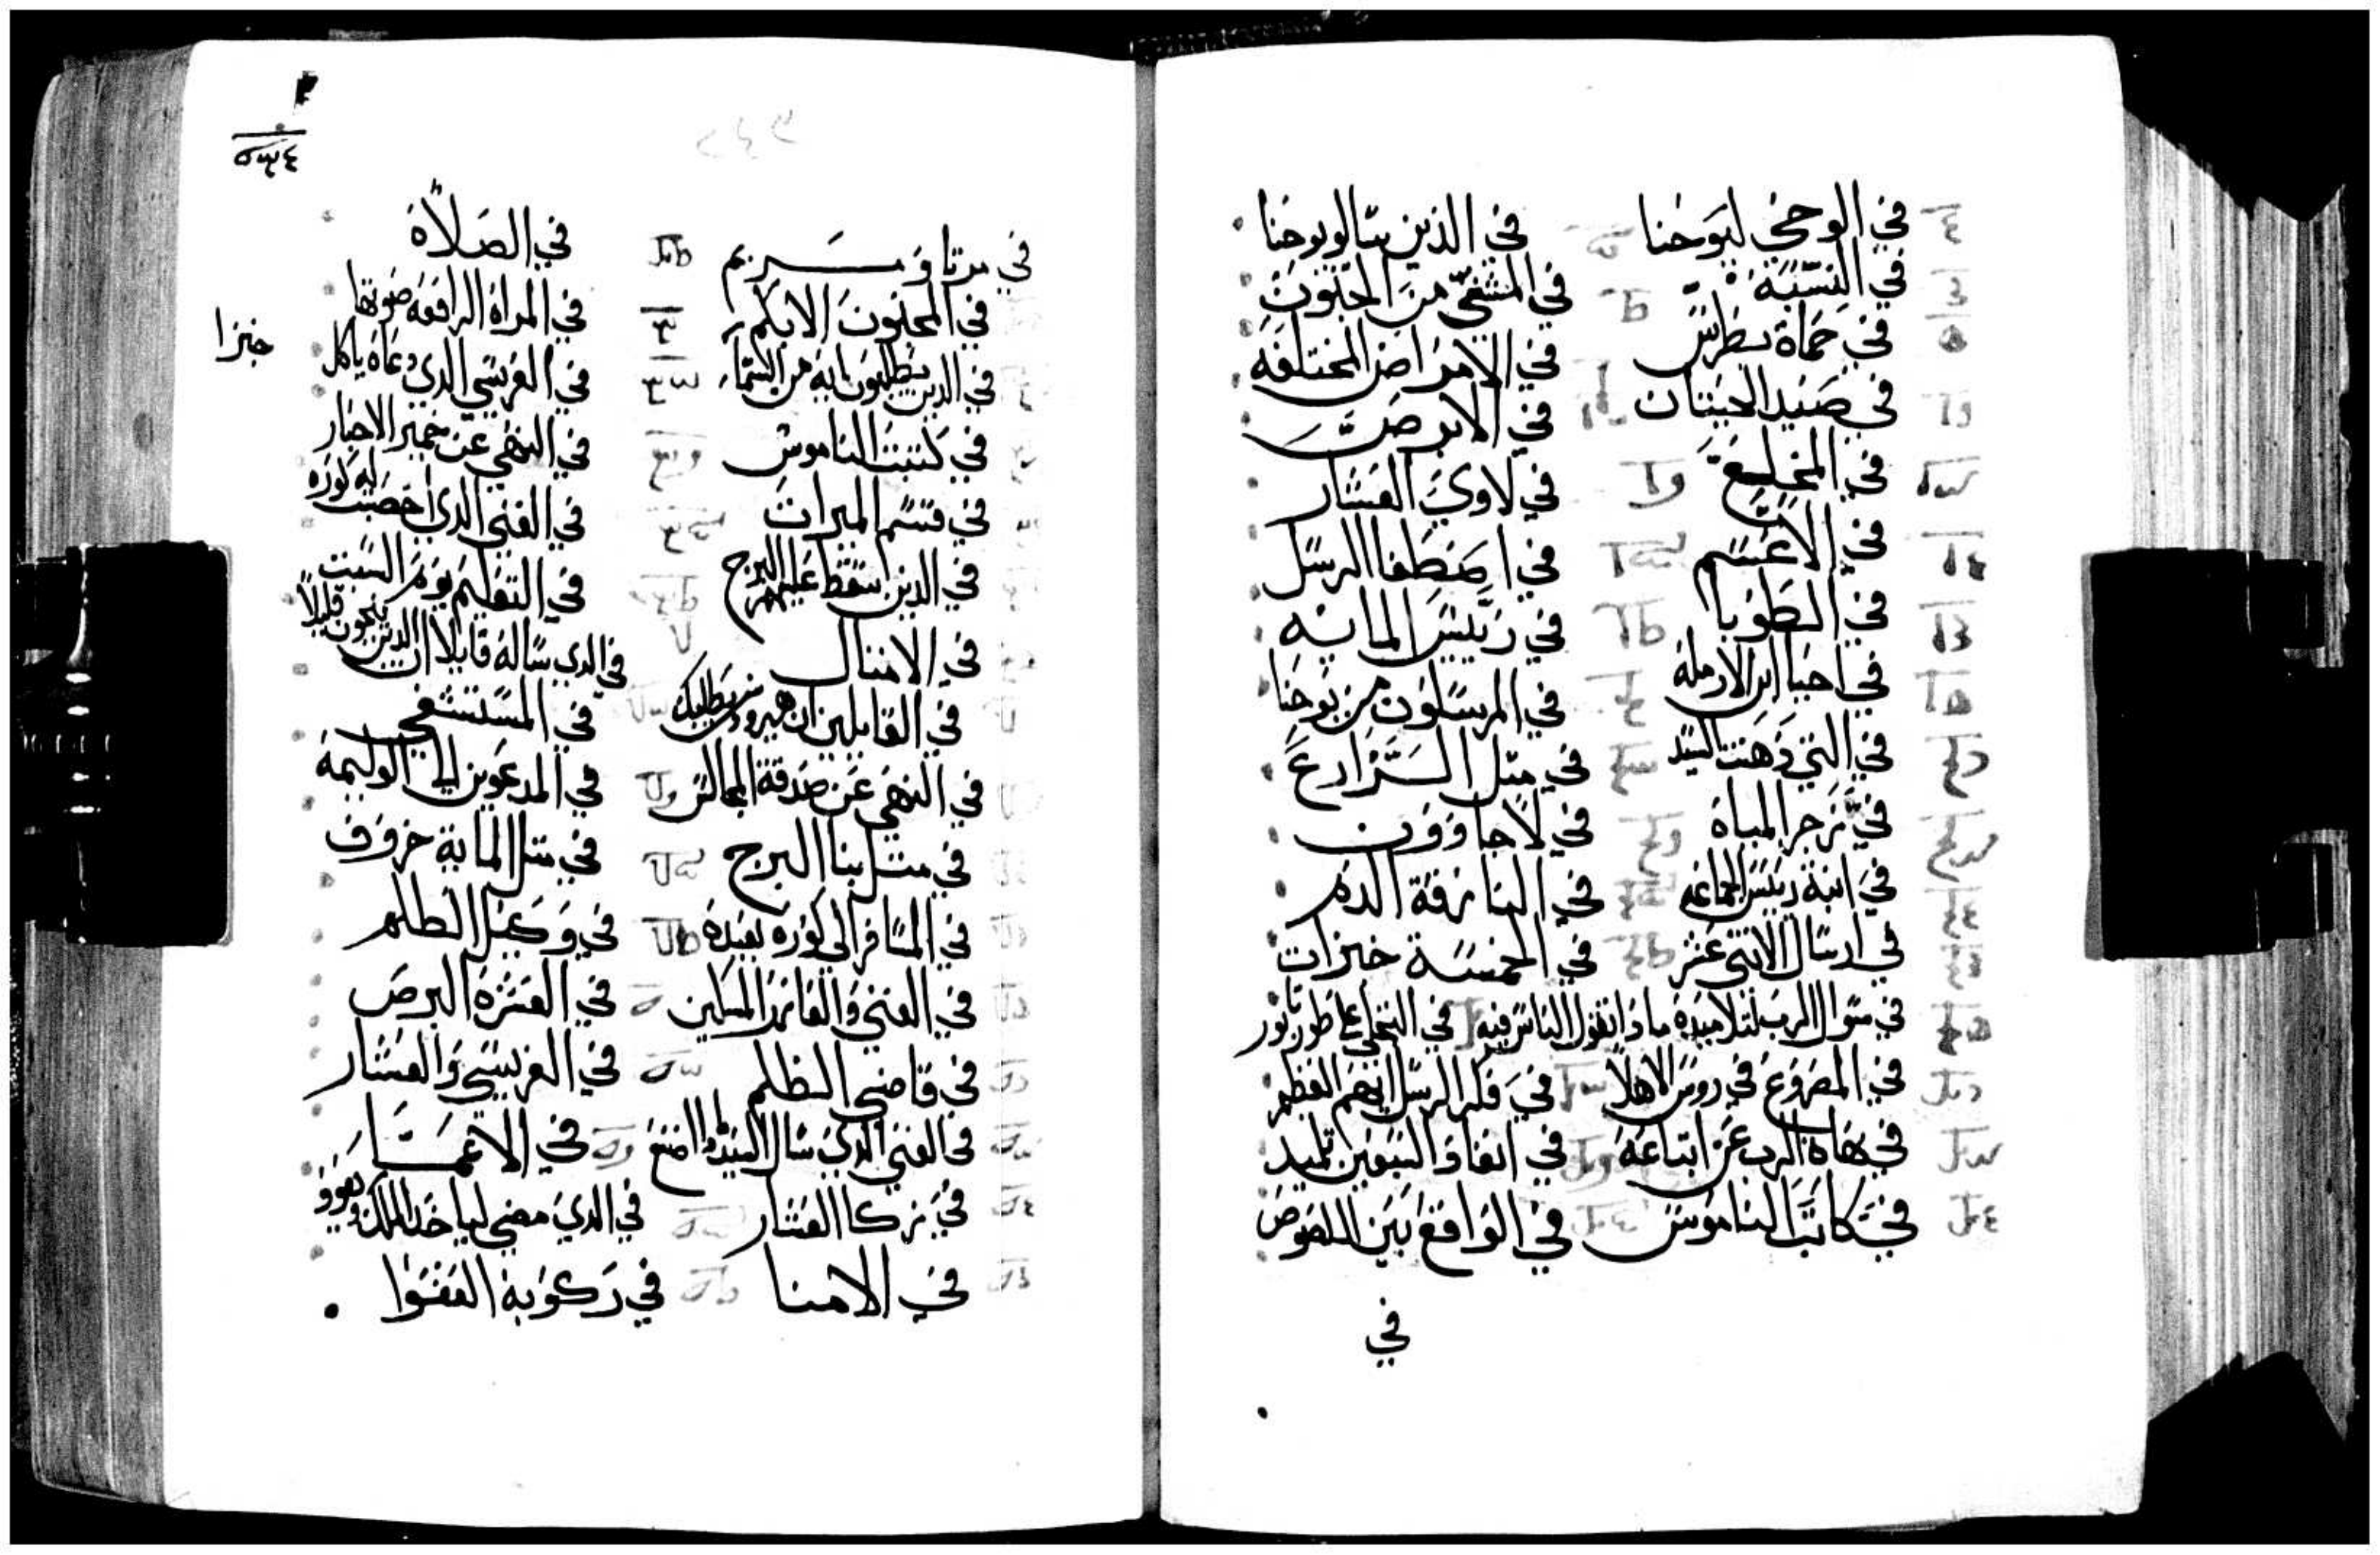 في الوحي ليوحنا في الذين سالو يوحنا
في النسبة في المشفي من الجنون
في حماة بطرس في الامراض المختلفه
في صيد الحيتان في الابرص
في المخلع في لاوي العشار
في الاعسم في اصطفا الرسل
في الطوبا في رييس المايه
في احيا ابن الارملة في المرسلون من يوحنا
في التي دهنت السيد في مثل الزارع
في زجر المياة في لاجاوون
في ابنة رييس الجماعه في النازفة الدم
في ارسال الاتني عشر في الخمسة خبزات
في سوال الرب لتلاميذة ماذا تقول الناس فيه في التجلي علي طور تابور
في المصروع في روس الاهلا في فكر الرسل ايهم العظيم
في نهاة الرب عن اتباعه في انفاذ السبعين تلميد
في كاتب الناموس في الواقع بين اللصوص
في
٥٣٤
في مرتا ومريم في الصلاة
في المجنون الابكم في المراة الرافعه صوتها
في الدين يطلبون اية من السماء في الفريسي الدي دعاة ياكل
خبزا
في كتبت الناموس في النهي عن خمير الاحبار
في قسم الميرات في الغني الدي اخصبت ليه كورة
في الدين سقط عليهم البرج في التعليم يوم السبت
في الامتال في الدي ساله قايلا ان الدين ينجون قليلا
في القايلين ان هيرودس يطلبك في المستسقي
في النهي عن صدقة المجالس في المدعوين الي الوليمة
في مثل بنا البرج في مثل الماية خروف
في المسافر الي كورة بعيدة في وكيل الظلم
في الغني والعازر المسكين في العشرة البرص
في قاضي الظلم في الفريسي والعشار
في الغني الدي سال السيد في الاعما
في زكا العشار في الدي مضي لياخد الملك ويعود
في الامنا في ركوبه العفوا